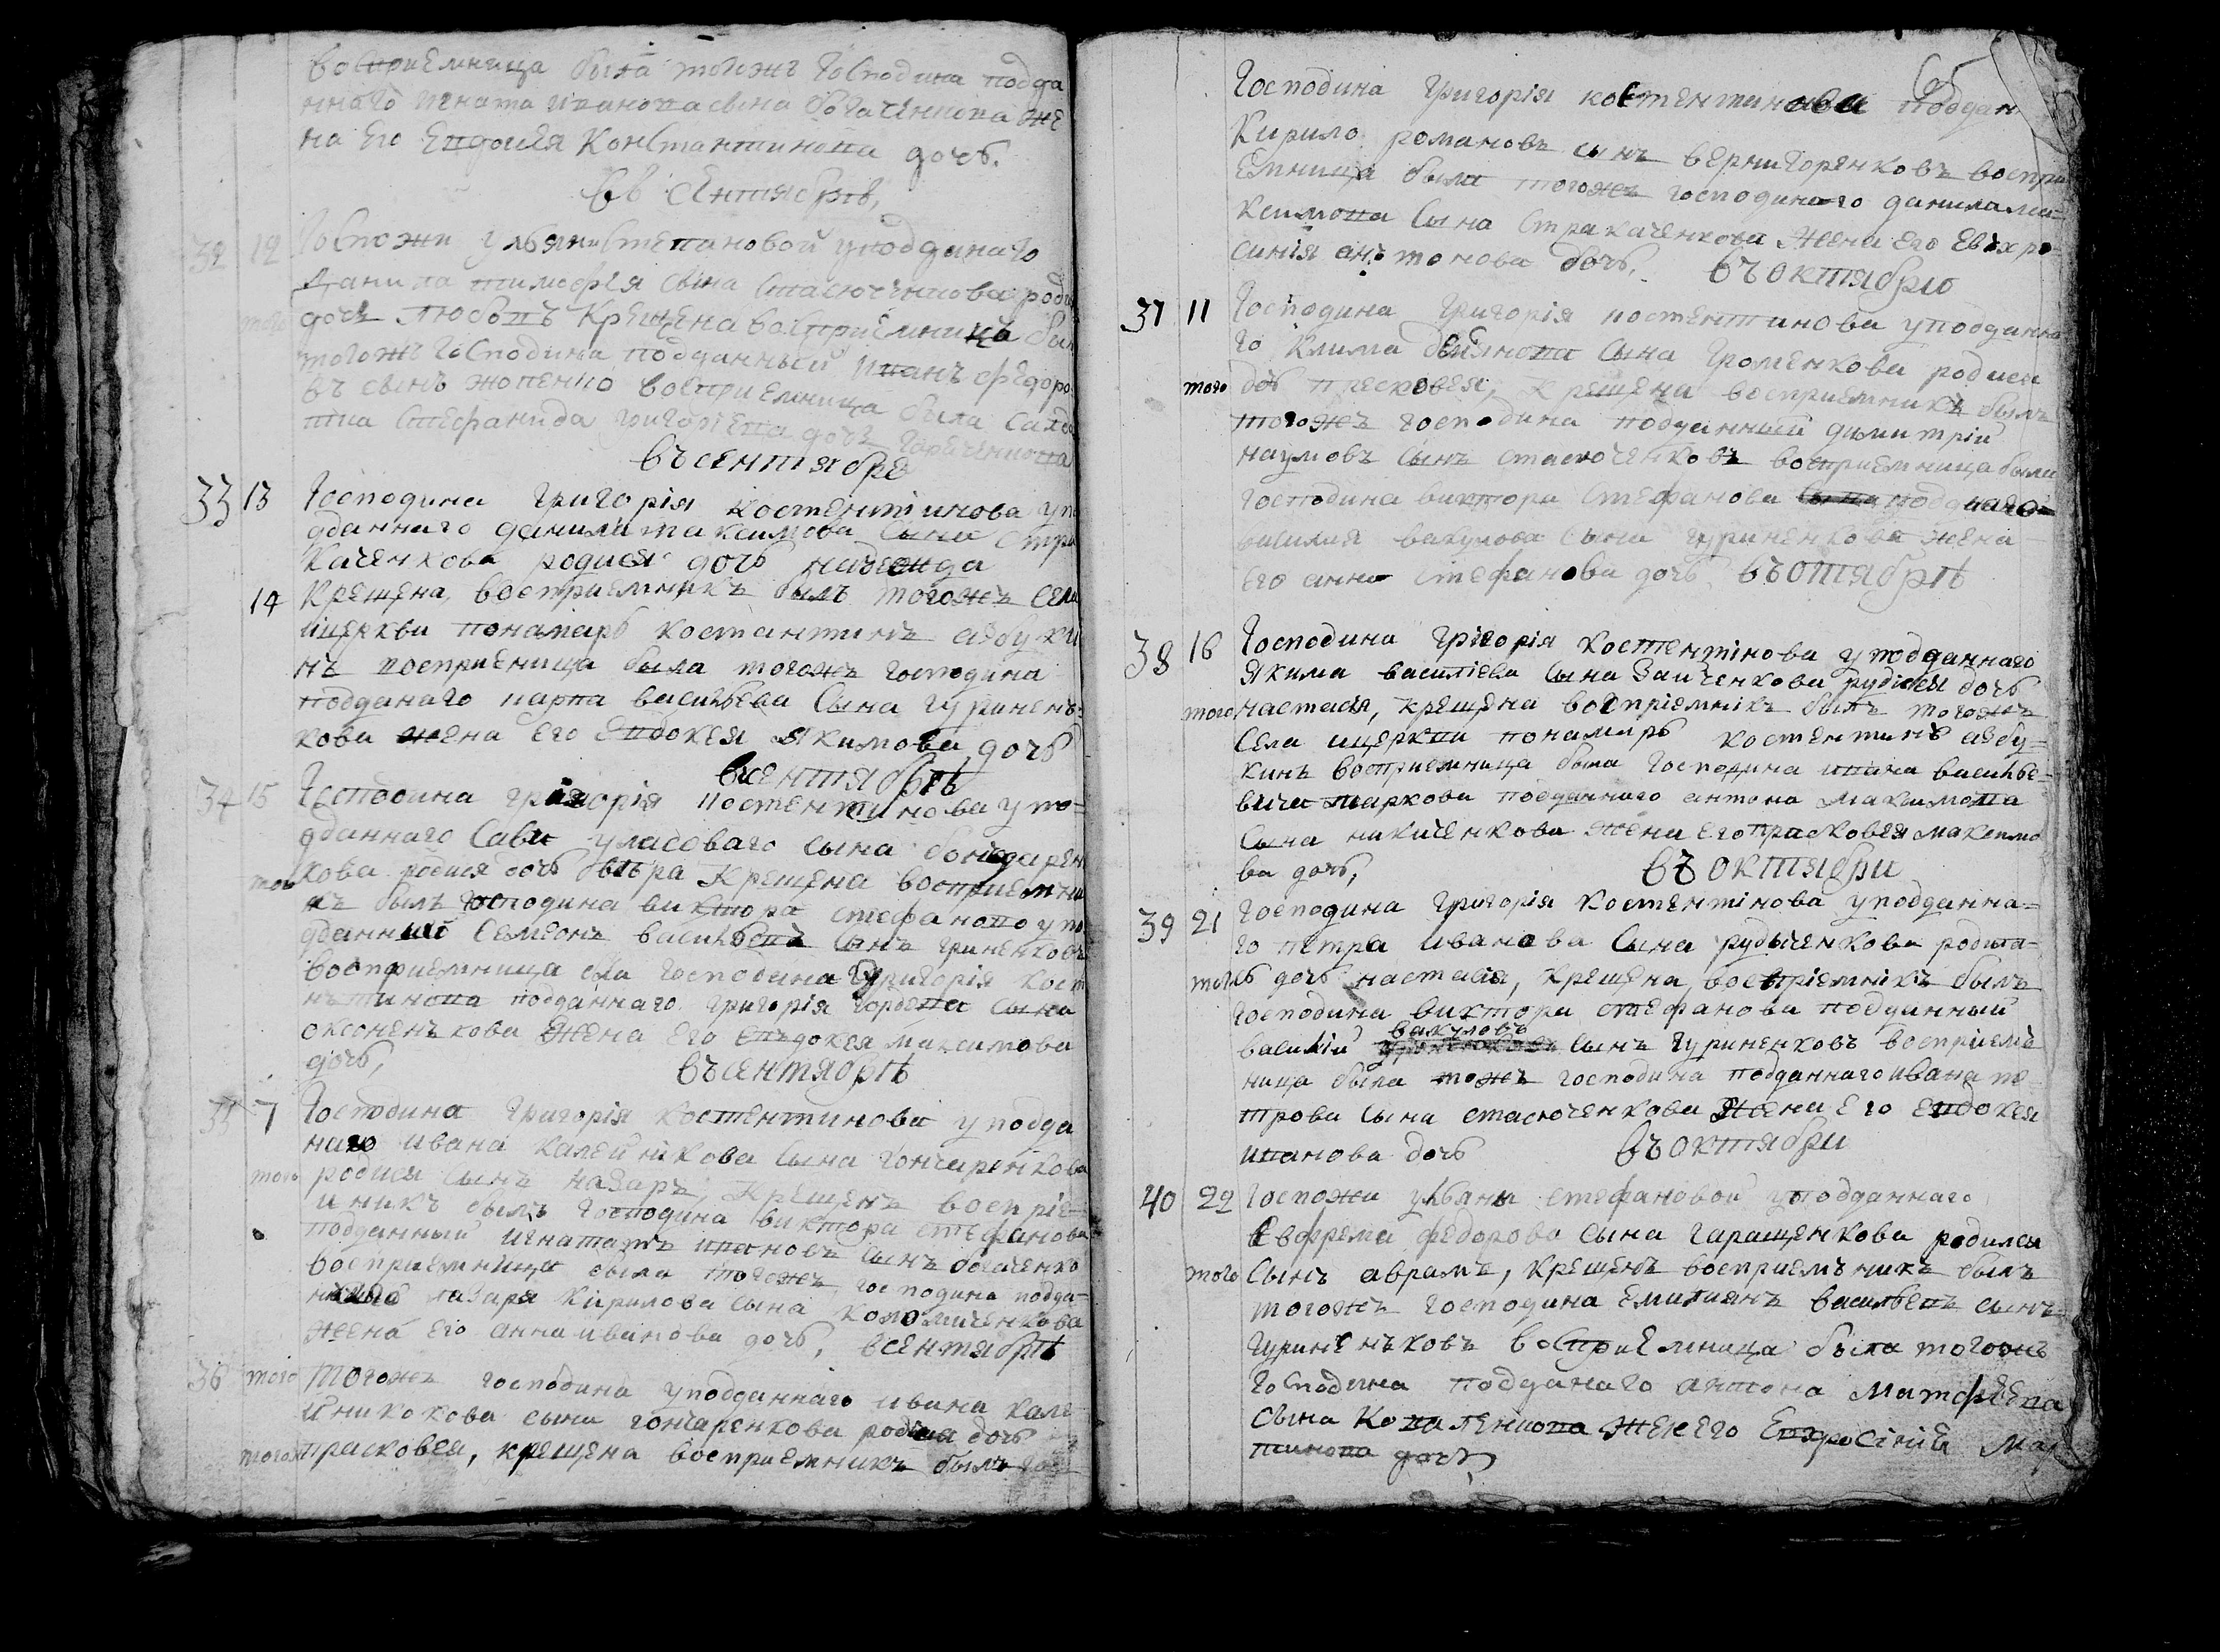 восприемница была тогожъ Господина подда
ннаго Игната Иванова сына Богаченкова же
на Его Евдокея Константинова дочь.
Въ Сентябрѣ,
32 12 Госпожи Ульяни Степановой уподданаго
Данила тимофея сына Стасюченкова роди
того дочь Любовъ Крещена восприемница был
тогожъ Господина подданный Иванъ федоро
въ сынъ восприемница была
Стефанида григорьева дочь
въ сентябре
33 13 Господина Григорія костентинова упо
дданнаго данила максимова сына Стра
каченкова родися дочь надежда
14 Крещена, восприемникъ былъ тогожъ села
ицеркви понамарь костантинъ азбуки
нъ восприеница была тогожъ господина
подданаго карпа васильева Сына гуринень
кова жена Его Евдокея якимова дочь
всентябрѣ
34 15 Господина григорія костентинова упо=
дданнаго Сави уласоваго сына бондарен
того кова родися дочь вѣра Крещена восприемни
къ былъ господина виктора стефанова упо
дданный Семеонъ васильевъ Сынъ гриненковъ
восприемница Господина Григорія Кост
нтинова подданнаго григорія гордева Сына
оксоненъкова Жена Его евъдокея максимова
дочь, въсентябрѣ
35 7 Господина Григорія Костентинова уподда
наго ивана калейникова Сына гончаренкова
того родися Сынъ назаръ, Крещенъ воспріе=
мникъ былъ господина виктора стефанова
подданный игнатъ ивановъ Сынъ богаченко
восприемница была тогожъ господина подда=
ннаго лазаря кирилова сына коломиченкова
жена его анна иванова дочь, всентябрѣ
36 того Тогожъ господина уподданнаго ивана кале
йникокова сына гончаренкова родися дочь
того прасковея, крещена восприемникъ былъ гос
65
Господина григорія костентинова поддан
Кирило романовъ сынъ вернигоренковъ воспри
Емница была тогожъ господинаго данила ма=
ксимова Сына Стракаченкова Жена его Евфхро=
синія антонова дочь, въоктябрю
37 11 Господина Григорія костентинова уподданна
го Клима Сына Громенкова родися
того доч прасковея, Крещена восприемникъ былъ
тогожъ господина подданный димитрій
наумовъ Сынъ стасюченковъ восприемница была
господина виктора стефанова подданаго
василия вакулова Сына гуриненкова жена
его анна стефанова дочь въоктябрѣ
38 16 Господина Грігорія костентінова уподданнаго
Якима василіева Сына Заиченкова родися дочь
того настася, крещена воспріемнікъ былъ тогожъ
Села ицеркви понамарь костентинъ азбу=
кинъ восприемница была Господина ивана василье=
вича маркова подданнаго антона Максимова
Сына никиченкова Жена его прасковея максимо
ва дочь, въ октябри
39 21 Господина Григорія Костентінова уподданна=
го петра иванова Сына рудыченкова родила=
того сь дочь настасія, крещена, воспріемнікъ былъ
господина виктора стефанова подданный
василій вакуловъ сынъ гуриненковъ восприемъ
ница была тожъ господина подданнаго ивана пе=
трова Сына стасюченкова Жена Его евдокея
иванова дочь въоктябри
40 22 Госпожи ульяны стефановой уподданнаго
Евфрема федорова сына гаращенкова родился
того Сынъ аврамъ, Крещенъ восприемъникъ былъ
тогожъ господина Емилиянъ васильевъ сынъ=
гуриненъковъ восприЕмница была тогожъ
Господина подданаго антона Матфѣева
сына Коваленкова Жена Его Евхросінія Мар
тинова дочь